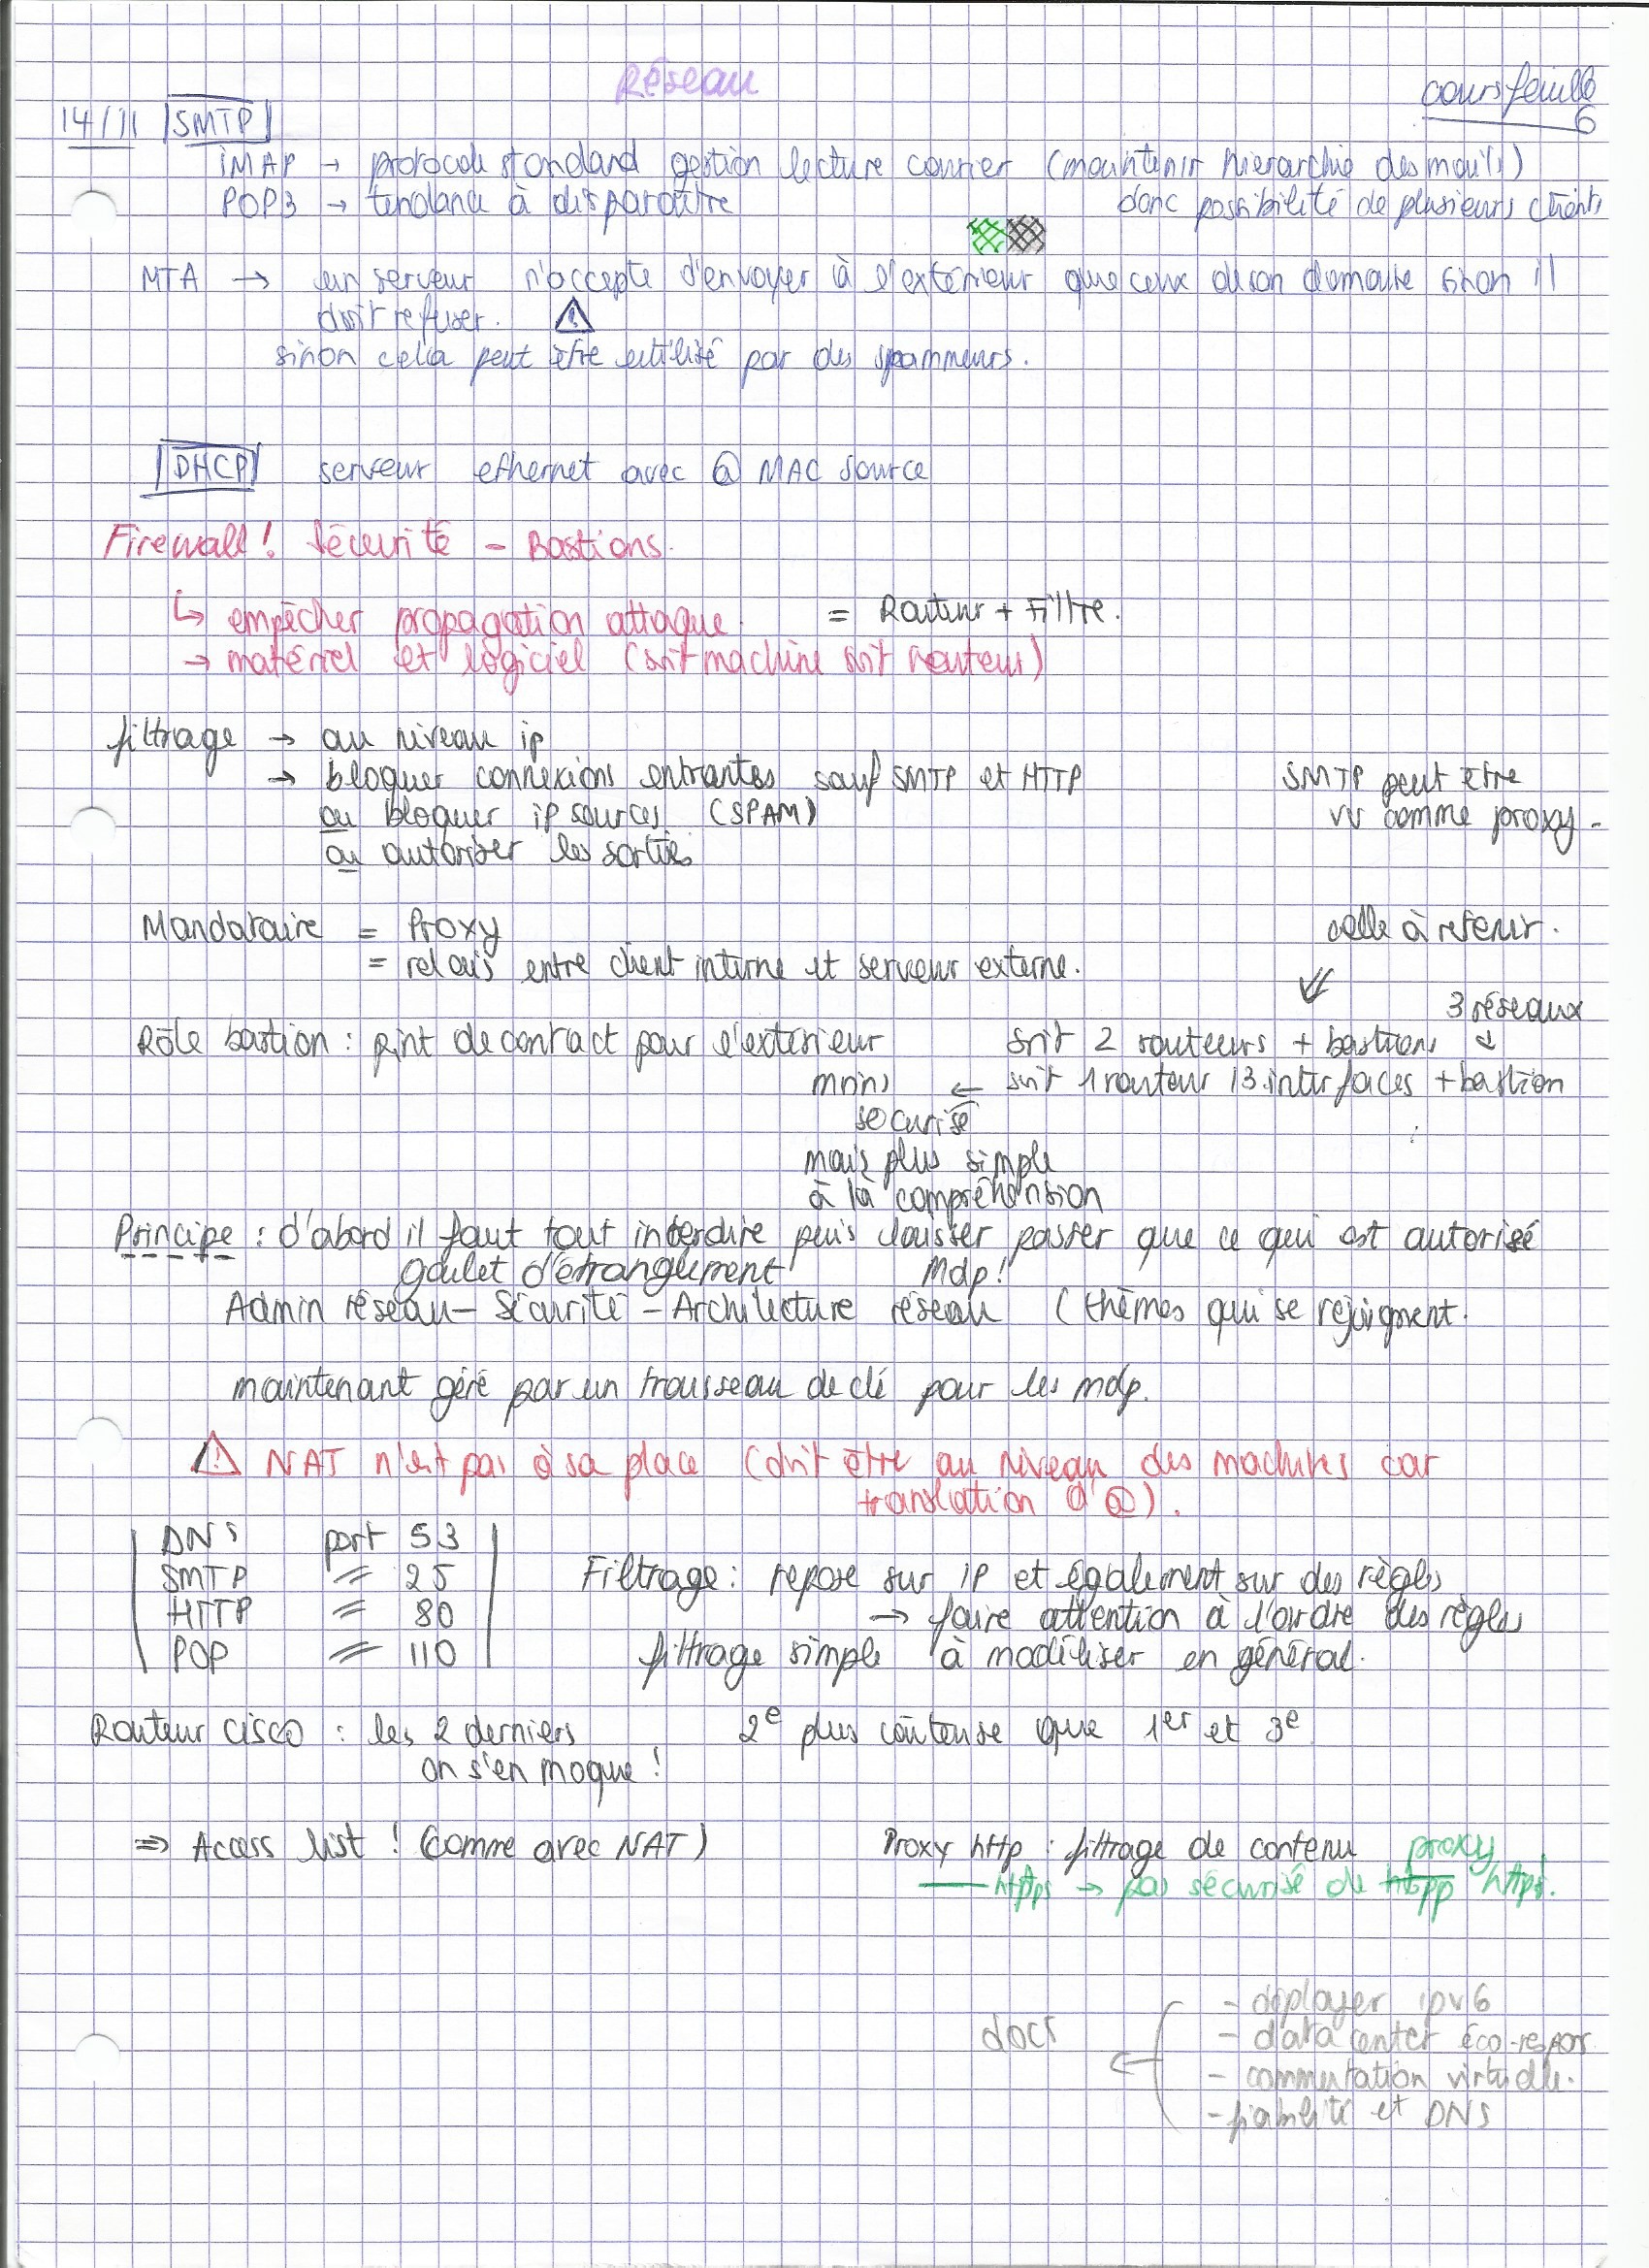 Réseau
cours feuille 6
14/11 SMTP
IMAP → protocole standard gestion lecture courrier (maintenir hierarchie des mails)
POP3 → tendance à disparaître donc possibilité de plusieurs clients
MTA → un serveur n'accepte d'envoyer à l'extérieur que ceux de son domaine sinon il
doit refuser. ⚠
sinon cela peut être utilisé par des spammeurs.
DHCP serveur ethernet avec @ MAC source
Firewall! Sécurité - Bastions.
↳ empêcher propagation attaque. = Routeur + Filtre.
→ matériel et logiciel (soit machine soit routeur)
filtrage → au niveau ip
→ bloquer connexions entrantes sauf SMTP et HTTP
ou bloquer ip sources (SPAM)
ou autoriser les sorties
SMTP peut être
vu comme proxy.
Mandataire = Proxy
= relais entre client interne et serveur externe.
celle à retenir.
3 réseaux
Rôle bastion : point de contact pour l'exterieur soit 2 routeurs + bastions
moins ← soit 1 routeur 13 interfaces + bastion
securisé
mais plus simple
à la compréhension
Principe : d'abord il faut tout interdire puis laisser passer que ce qui est autorisé
goulet d'étranglement Mdp!
Admin réseau - Sécurité - Architecture réseau (thèmes qui se rejoignent.
maintenant géré par un trousseau de clé pour les mdp.
⚠ NAT n'est pas à sa place (doit être au niveau des machines car
translation d'@).
DNS port 53
SMTP = 25
HTTP = 80
POP = 110
Filtrage : repose sur IP et également sur des règles
→ faire attention à l'ordre des règles
filtrage simple à modéliser en général.
Routeur cisco : les 2 derniers
on s'en moque !
2e plus coûteuse que 1er et 3e
⇒ Access list ! (comme avec NAT)
Proxy http : filtrage de contenu proxy
— https → pas sécurisé de https.
docs ←
- déployer ipv6
- data center éco-respon.
- commutation virtuelle.
- fiabilité et DNS